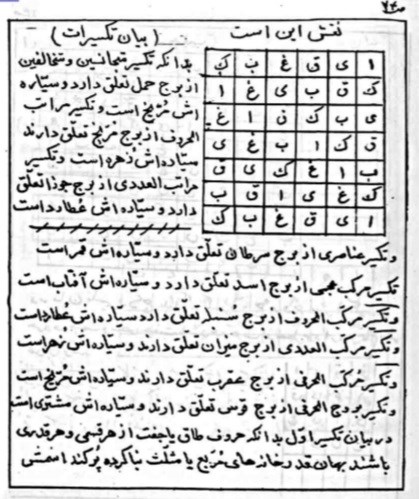 نقش این است
( بیان تکسیرات )
ا ی ق غ ب ک
ک ق ب ی غ ا
ی ب ک ق ا غ
ق ک ا ب غ ی
ب ا غ ک ی ق
ک غ ی ا ق ب
ا ی ق غ ب ک
بدانکه تکسیر متجانسین و متخالفین
از برج حمل تعلّق دارد و سیّاره
اش مرّیخ است و تکسیر مراتب
الحروف از برج تعلّق دارند
ستاره اش زهره است و تکسیر
مراتب العددی از برج جوزا تعلّق
دارد و سیّاره اش عطارد است
و تکسیر عناصری از برج سرطان تعلّق دارد و سیّاره اش قمر است
تکسیر مرکب از برج اسد تعلّق دارد و سیّاره اش آفتاب است
و تکسیر مرکب الحروف از برج سنبله تعلّق دارد سیاره اش عطارد است
و تکسیر مرکب العددی از برج میزان تعلّق دارند و سیّاره اش زهر است
و تکسیر مرکب الحرفی از برج عقرب تعلّق دارند و سیّاره اش مرّیخ است
و تکسیر الحرفی از برج قوس تعلّق دارند و سیّاره اش مشتری است
در بیان تکسیر اوّل بدانکه حروف طاق یا جفت از هر قسمی و هر قدری
باشند بهمان قدر خانه های مربع یا مثلث بنا کرده پر کند